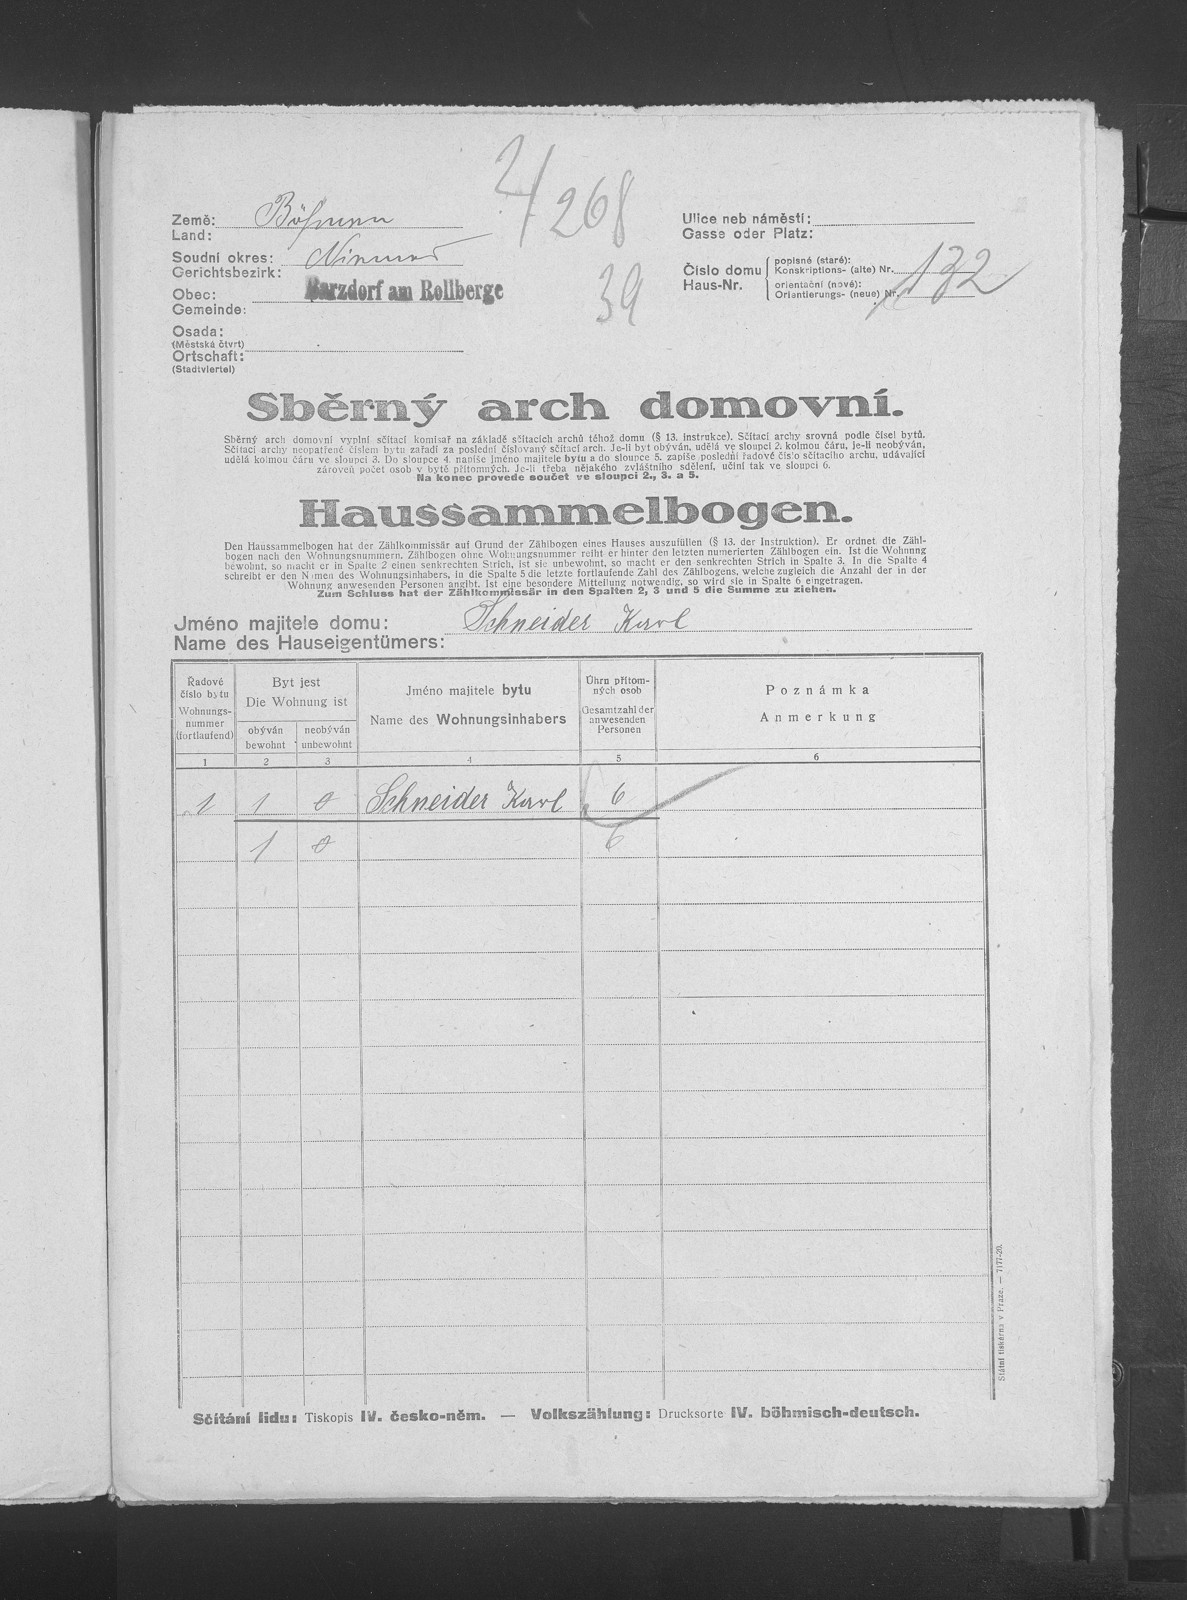 2/268
39
Země: Böhmen
Land:
Soudní okres: Niemes
Gerichtsbezirk:
Obec: Barzdorf am Rollberge
Gemeinde:
Osada:
(Městská čtvrť)
Ortschaft:
(Stadtviertel)
Ulice neb náměstí:
Gasse oder Platz:
Číslo domu
Haus-Nr.
popisné (staré):
Konskriptions- (alte) Nr.
132
orientační (nové):
Orientierungs- (neue) Nr.
Sběrný arch domovní.
Sběrný arch domovní vyplní sčítací komisař na základě sčítacích archů téhož domu (§ 13. instrukce). Sčítací archy srovná podle čísel bytů.
Sčítací archy neopatřené číslem bytu zařadí za poslední číslovaný sčítací arch. Je-li byt obýván, udělá ve sloupci 2. kolmou čáru, je-li neobýván,
udělá kolmou čáru ve sloupci 3. Do sloupce 4. napíše jméno majitele bytu a do sloupce 5. zapíše poslední řadové číslo sčítacího archu, udávající
zároveň počet osob v bytě přítomných. Je-li třeba nějakého zvláštního sdělení, učiní tak ve sloupci 6.
Na konec provede součet ve sloupci 2., 3. a 5.
Haussammelbogen.
Den Haussammelbogen hat der Zählkommissär auf Grund der Zählbogen eines Hauses auszufüllen (§ 13. der Instruktion). Er ordnet die Zähl-
bogen nach den Wohnungsnummern. Zählbogen ohne Wohnungsnummer reiht er hinter den letzten numerierten Zählbogen ein. Ist die Wohnung
bewohnt, so macht er in Spalte 2 einen senkrechten Strich, ist sie unbewohnt, so macht er den senkrechten Strich in Spalte 3. In die Spalte 4
schreibt er den Namen des Wohnungsinhabers, in die Spalte 5 die letzte fortlaufende Zahl des Zählbogens, welche zugleich die Anzahl der in der
Wohnung anwesenden Personen angibt. Ist eine besondere Mitteilung notwendig, so wird sie in Spalte 6 eingetragen.
Zum Schluss hat der Zählkommissär in den Spalten 2, 3 und 5 die Summe zu ziehen.
Jméno majitele domu: Schneider Karl
Name des Hauseigentümers:
Řadové
číslo bytu
Wohnungs-
nummer
(fortlaufend)
Byt jest
Die Wohnung ist
obýván
bewohnt
neobýván
unbewohnt
Jméno majitele bytu
Name des Wohnungsinhabers
Úhrn přítom-
ných osob
Gesamtzahl der
anwesenden
Personen
Poznámka
Anmerkung
1 2 3 4 5 6
1 1 0 Schneider Karl 6
1 0 6
Sčítání lidu: Tiskopis IV. česko-něm. — Volkszählung: Drucksorte IV. böhmisch-deutsch.
Státní tiskárna v Praze. — 7177-20.